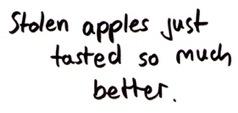 Stolen apples just
tasted so much
better.